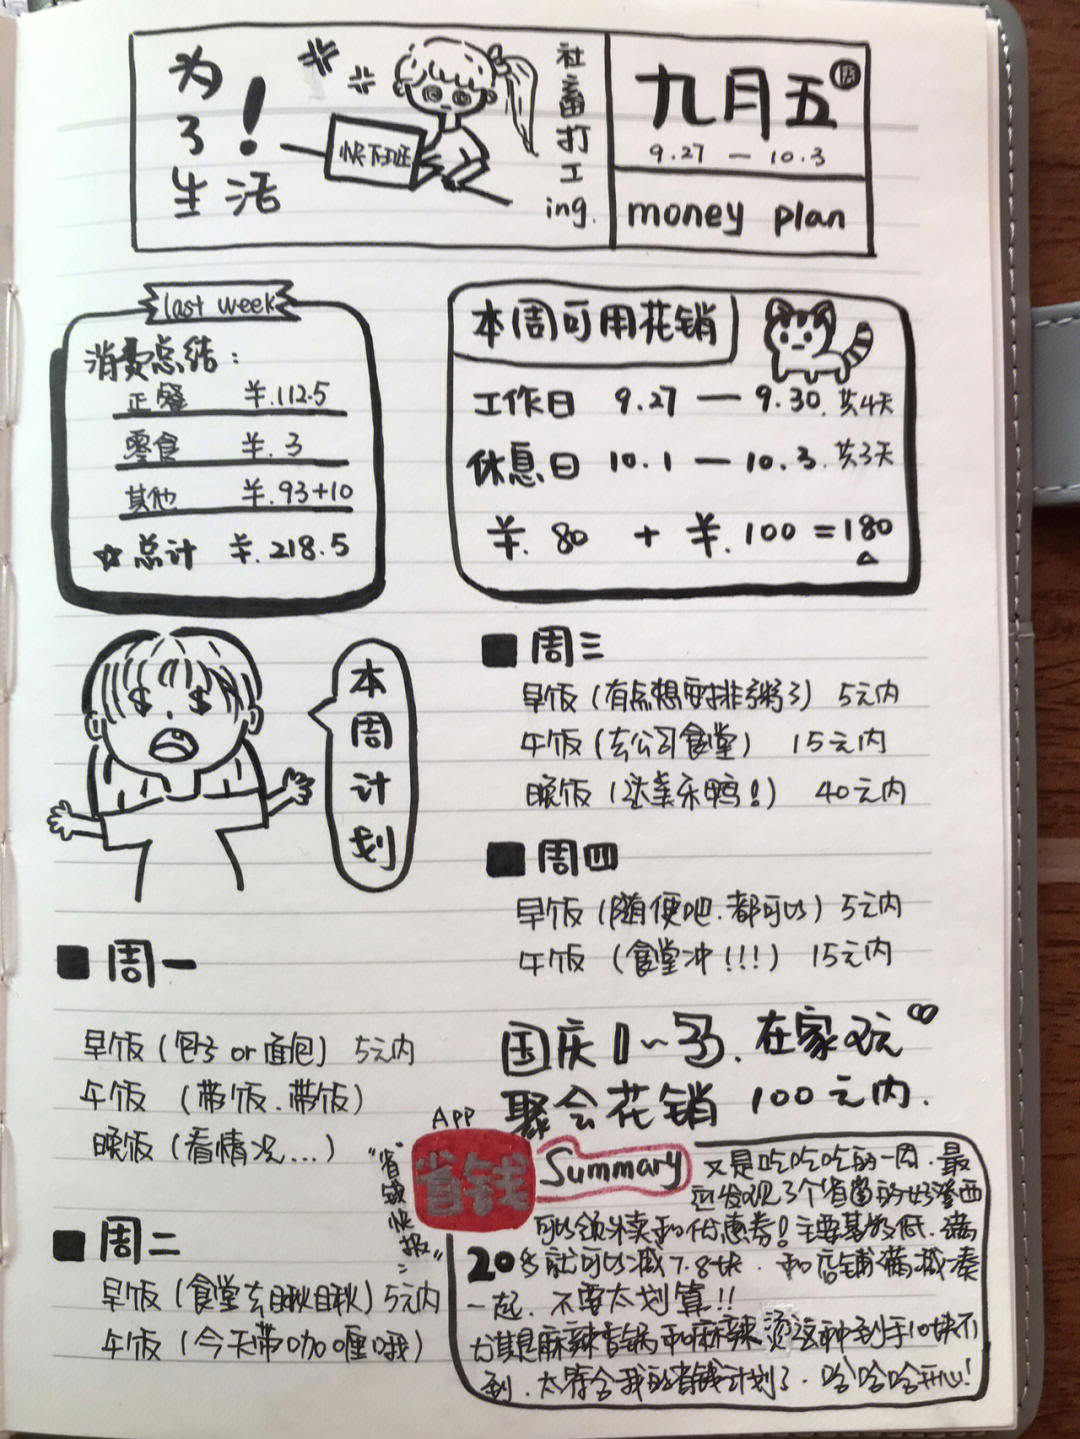 为了!
生活
快下班
社畜打工ing.
九月五周
9.27 — 10.3
money plan
last week
消费总结:
正餐 ¥.112.5
零食 ¥.3
其他 ¥.93+10
☆总计 ¥.218.5
本周可用花销
工作日 9.27 — 9.30.共4天
休息日 10.1 — 10.3.共3天
¥.80 + ¥.100 = 180
本周计划
■周一
早饭(包子or面包) 5元内
午饭 (带饭.带饭)
晚饭(看情况...)
■周二
早饭(食堂去瞅瞅)5元内
午饭(今天带咖喱哦)
■周三
早饭(有点想要排粥了) 5元内
午饭(去公司食堂) 15元内
晚饭(鸭!) 40元内
■周四
早饭(随便吧.都可以)5元内
午饭 (食堂冲!!!) 15元内
国庆1~3.在家玩
聚会花销 100元内.
App
省钱
"省钱快报"
Summary
又是吃吃吃的一周.最
近发现了个省钱的好东西
可以领外卖和优惠券!主要基数低.满
20多就可以减7.8块.和店铺满减凑
一起.不要太划算!!
尤其是麻辣香锅和麻辣烫这种到手10块不
到.太符合我的省钱计划了.哈哈哈开心!